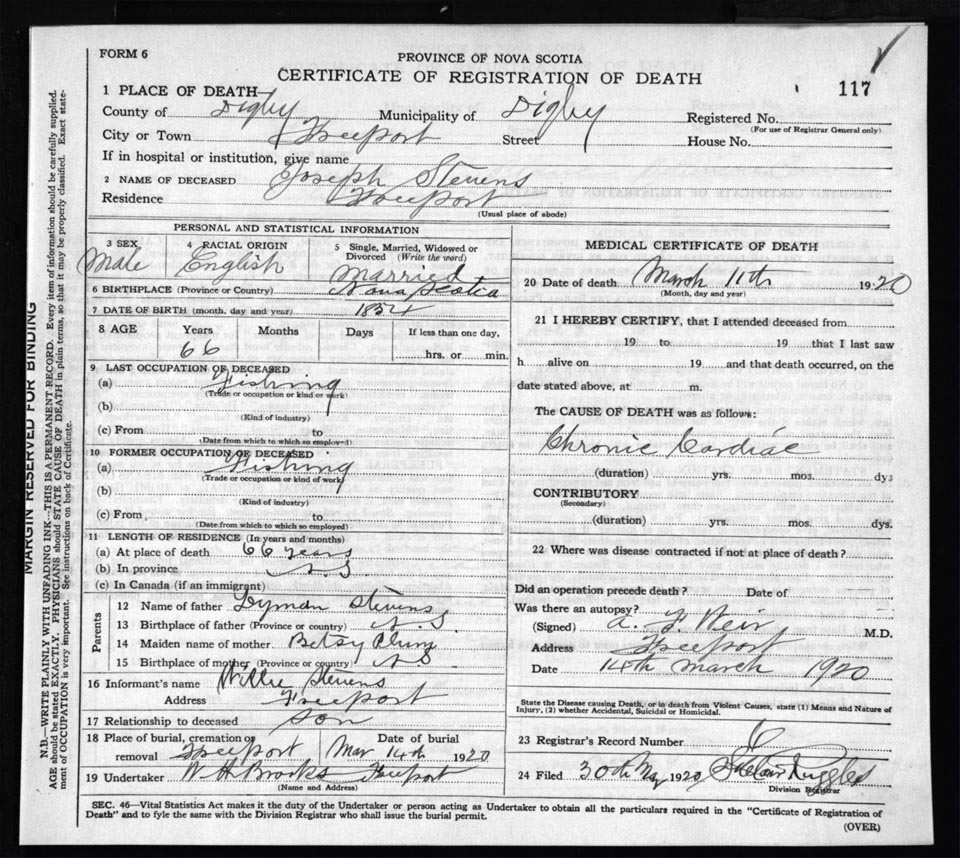 FORM 6
PROVINCE OF NOVA SCOTIA
CERTIFICATE OF REGISTRATION OF DEATH
117
1 PLACE OF DEATH—
County of Digby Municipality of Digby Registered No.
(For use of Registrar General only)
City or Town Freeport Street House No.
If in hospital or institution, give name
2 NAME OF DECEASED Joseph Stevens
Residence Freeport
(Usual place of abode)
PERSONAL AND STATISTICAL INFORMATION
3 SEX 4 RACIAL ORIGIN 5 Single, Married, Widowed or Divorced (Write the word)
Male English Married
6 BIRTHPLACE (Province or Country) Nova Scotia
7 DATE OF BIRTH (month, day and year) 1854
8 AGE Years Months Days If less than one day,
66 hrs. or min.
9 LAST OCCUPATION OF DECEASED
(a) Fishing
(Trade or occupation or kind or work)
(b)
(Kind of industry)
(c) From to
(Date from which to which so employed)
10 FORMER OCCUPATION OF DECEASED
(a) Fishing
(Trade or occupation or kind of work)
(b)
(Kind of industry)
(c) From to
(Date from which to which so employed)
11 LENGTH OF RESIDENCE (In years and months)
(a) At place of death 66 years
(b) In province N.S
(c) In Canada (if an immigrant)
Parents
12 Name of father Lyman Stevens
13 Birthplace of father (Province or country) N.S
14 Maiden name of mother Betsy
15 Birthplace of mother (Province or country) N S
16 Informant's name Willie Stevens
Address Freeport
17 Relationship to deceased Son
18 Place of burial, cremation or removal Freeport Date of burial Mar 14th 1920
19 Undertaker W H Brooks Freeport
(Name and Address)
MEDICAL CERTIFICATE OF DEATH
20 Date of death March 11th 1920
(Month, day and year)
21 I HEREBY CERTIFY, that I attended deceased from
19 to 19 that I last saw
h alive on 19 and that death occurred, on the
date stated above, at m.
The CAUSE OF DEATH was as follows:
Chronic Cardiac
(duration) yrs. mos. dys
CONTRIBUTORY
(Secondary)
(duration) yrs. mos. dys.
22 Where was disease contracted if not at place of death?
Did an operation precede death? Date of
Was there an autopsy?
(Signed) A. F. Weir M.D.
Address Freeport
Date 14th March 1920
State the Disease causing Death, or in death from Violent Causes, state (1) Means and Nature of
Injury, (2) whether Accidental, Suicidal or Homicidal.
23 Registrar's Record Number
24 Filed 30th 1920 Ruggles
Division Registrar
SEC. 46—Vital Statistics Act makes it the duty of the Undertaker or person acting as Undertaker to obtain all the particulars required in the "Certificate of Registration of
Death" and to fyle the same with the Division Registrar who shall issue the burial permit.
(OVER)
MARGIN RESERVED FOR BINDING
N.B.—WRITE PLAINLY WITH UNFADING INK—THIS IS A PERMANENT RECORD. Every item of information should be carefully supplied.
AGE should be stated EXACTLY. PHYSICIANS should STATE CAUSE OF DEATH in plain terms, so that it may be properly classified. Exact state-
ment of OCCUPATION is very important. See instructions on back of Certificate.